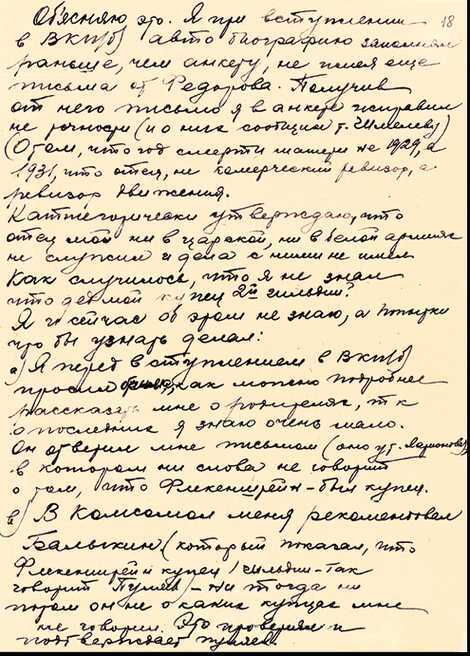 18
Об'ясняю это. Я при вступлении
в ВКП(б) автобиографию заполнял
раньше, чем анкету, не имея еще
письма от Федорова. Получив
от него письмо я в анкете исправил
не точности (и о них сообщил т. Шмелеву)
(О том, что год смерти матери не 1929, а
1931, что отец, не комерческий ревизор, а
ревизор движения.
Каттегорически утверждаю, что
отец мой ни в царской, ни в белой армиях
не служил и дела с ними не имел
Как случилось, что я не знал
что дед мой купец 2й гильдии?
Я и сейчас об этом не знаю, а попытки
что бы узнать делал:
а) Я перед вступлением в ВКП(б)
просил как можно подробнее
рассказать мне о родителях, т.к
о последних я знаю очень мало.
Он ответил мне письмом (оно у т. Ларионова)
в котором ни слова не говорит
о том, что Флекенштейн – был купец.
в) В Комсомол меня рекомендовал
Балыкин (который показал, что
Флекенштейн купец 1 гильдии – так
говорит – ни тогда ни
потом он не о каких купцах мне
не говорил. Это проверял и
подтверждает